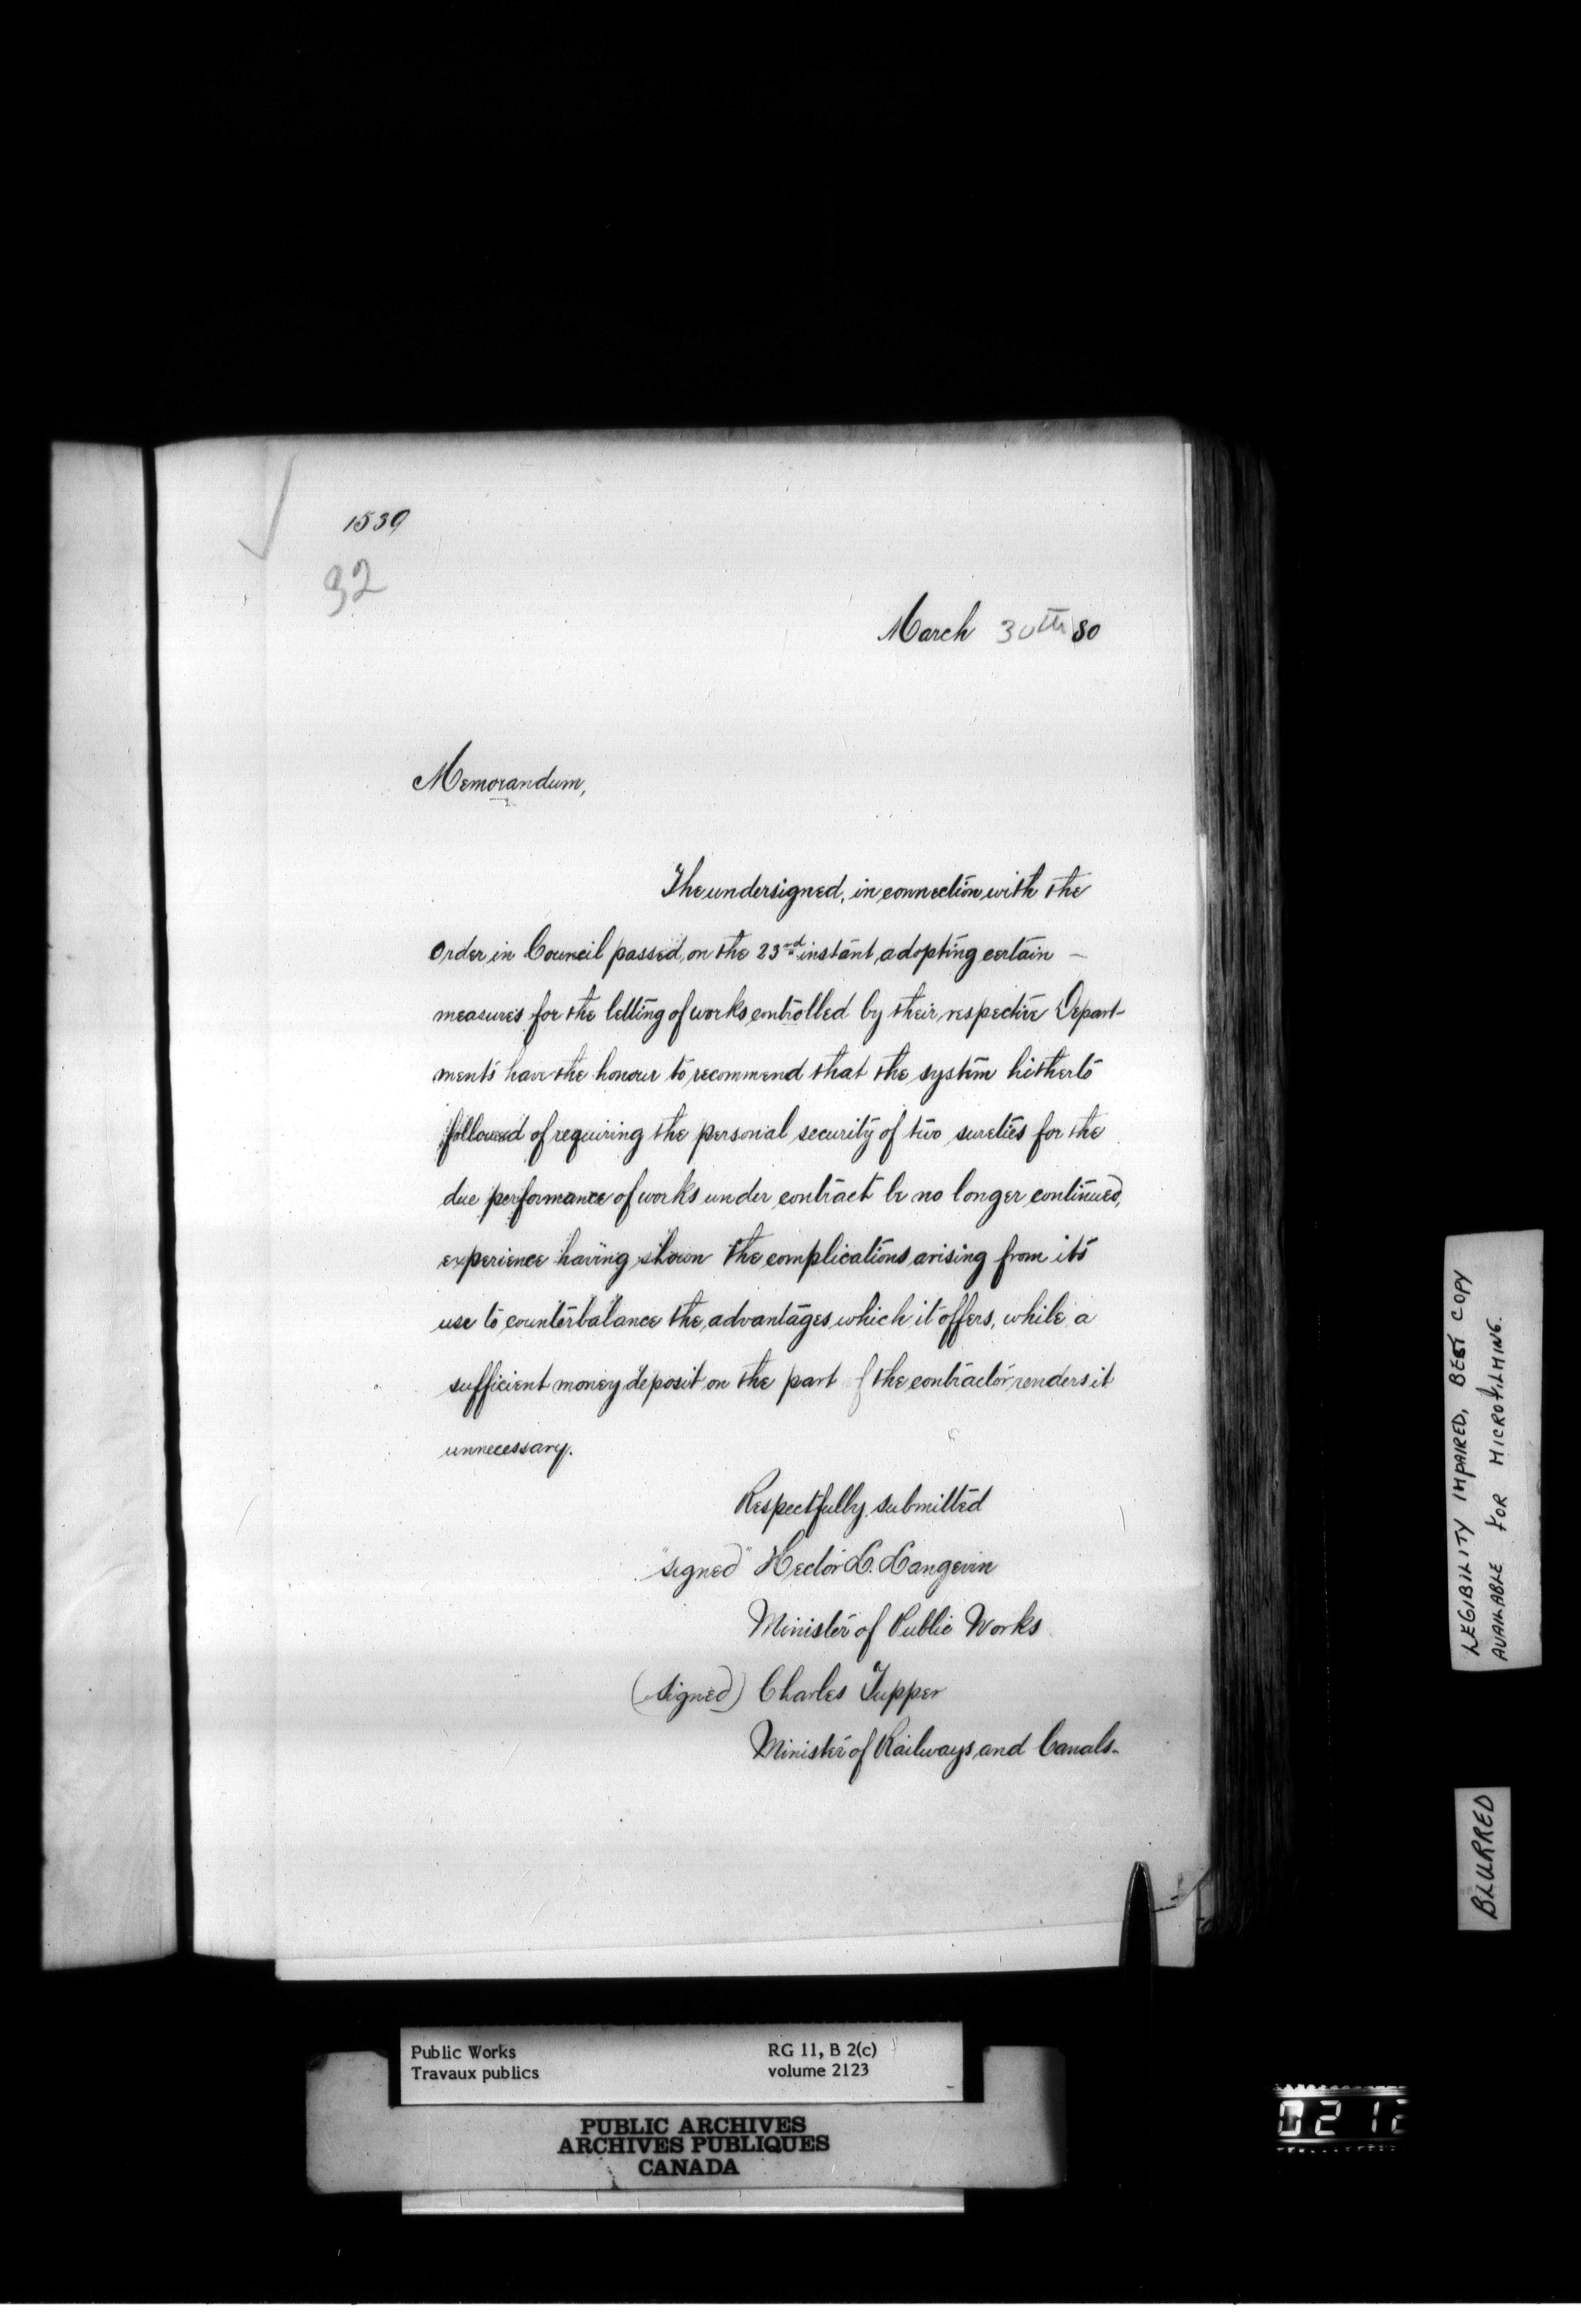 1539
92
March 30th 80
Memorandum,
The undersigned, in connection with the
Order in Council passed, on the 23rd instant, adopting certain —
measures for the letting of works controlled by their respective Depart-
ments have the honour to recommend that the system hitherto
followed of requiring the personal security of two sureties for the
due performance of works under contract be no longer continued,
experience having shown the complications arising from its
use to counterbalance the advantages which it offers, while a
sufficient money deposit on the part of the contractor renders it
unnecessary.
Respectfully submitted
"signed" Hector L. Langevin
Minister of Public Works
(signed) Charles Tupper
Minister of Railways and Canals.
LEGIBILITY IMPAIRED, BEST COPY
AVAILABLE FOR MICROFILMING.
BLURRED
Public Works RG 11, B 2(c)
Travaux publics volume 2123
PUBLIC ARCHIVES
ARCHIVES PUBLIQUES
CANADA